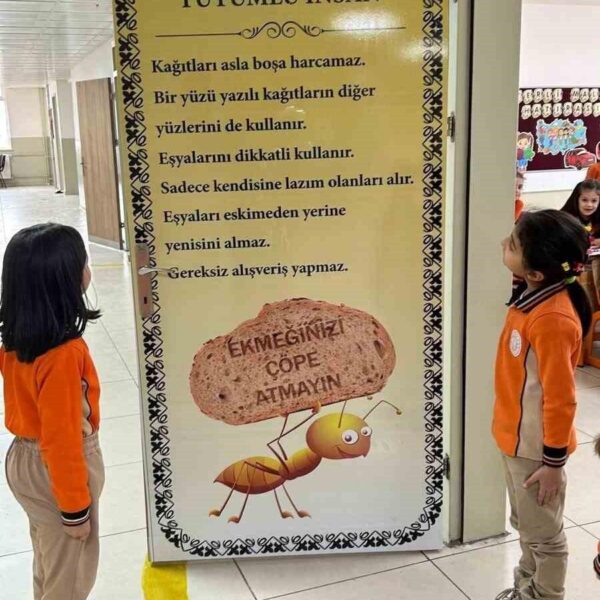 TUTUMLU İNSAN
Kağıtları asla boşa harcamaz.
Bir yüzü yazılı kağıtların diğer
yüzlerini de kullanır.
Eşyalarını dikkatli kullanır.
Sadece kendisine lazım olanları alır.
Eşyaları eskimeden yerine
yenisini almaz.
Gereksiz alışveriş yapmaz.
EKMEĞİNİZİ
ÇÖPE
ATMAYIN